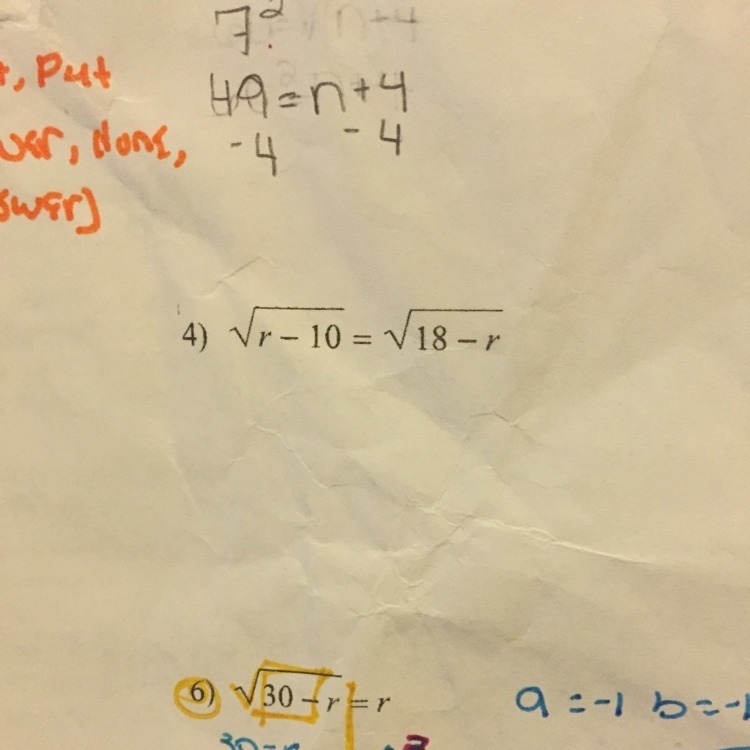 7²
t, Put
49 = n + 4
wer, done,
-4 -4
swer]
4) √(r − 10) = √(18 − r)
6) √(30 − r) = r
a = -1 b = -1